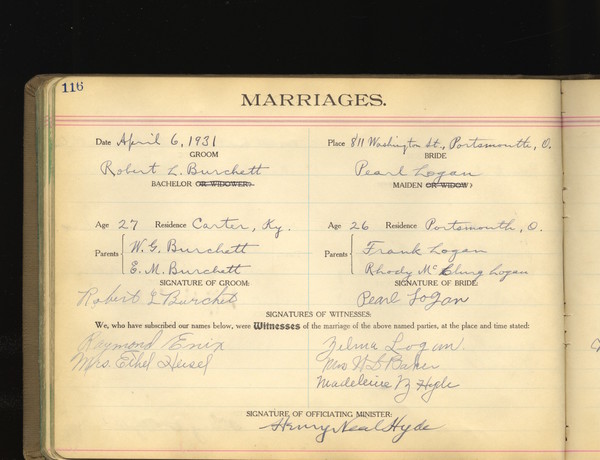 116
MARRIAGES.
Date April 6, 1931 Place 811 Washington St., Portsmouth, O.
GROOM BRIDE
Robert L. Burchett Pearl Logan
BACHELOR OR WIDOWER. MAIDEN OR WIDOW
Age 27 Residence Carter, Ky. Age 26 Residence Portsmouth, O.
Parents W. G. Burchett Frank Logan
E. M. Burchett Parents Rhody McClung Logan
SIGNATURE OF GROOM: SIGNATURE OF BRIDE:
Robert L Burchett Pearl Logan
SIGNATURES OF WITNESSES:
We, who have subscribed our names below, were Witnesses of the marriage of the above named parties, at the place and time stated:
Raymond Enix Zelma Logan.
Mrs. Ethel Heisel Mrs W S Baker
Madeleine Hyde
SIGNATURE OF OFFICIATING MINISTER:
Henry Neal Hyde